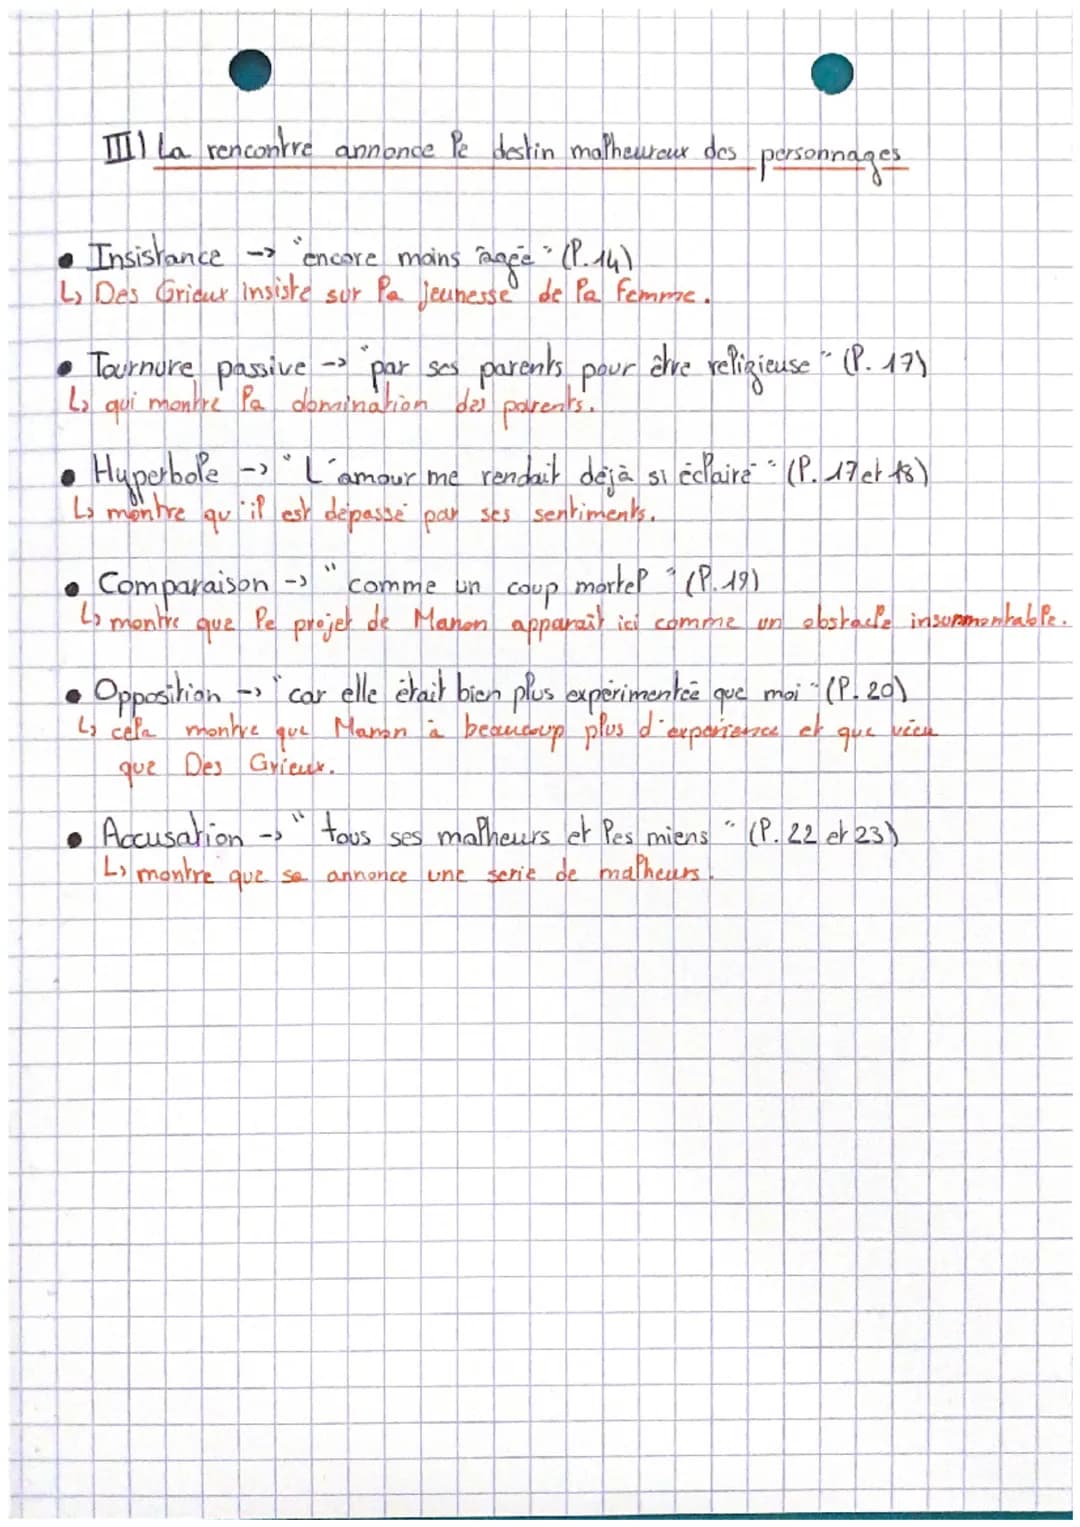 III) La rencontre annonce le destin malheureux des personnages
• Insistance -> "encore moins âgée" (l.14)
↳ Des Grieux insiste sur la jeunesse de la femme.
• Tournure passive -> "par ses parents pour être religieuse" (l. 17)
↳ qui montre la domination des parents.
• Hyperbole -> "L'amour me rendait déjà si éclairé" (l. 17 et 18)
↳ montre qu'il est dépassé par ses sentiments.
• Comparaison -> "comme un coup mortel" (l. 19)
↳ montre que le projet de Manon apparaît ici comme un obstacle insurmontable.
• Opposition -> "car elle était bien plus expérimentée que moi" (l. 20)
↳ cela montre que Manon à beaucoup plus d'experience et que vécu
que Des Grieux.
• Accusation -> "tous ses malheurs et les miens" (l. 22 et 23)
↳ montre que sa annonce une serie de malheurs.